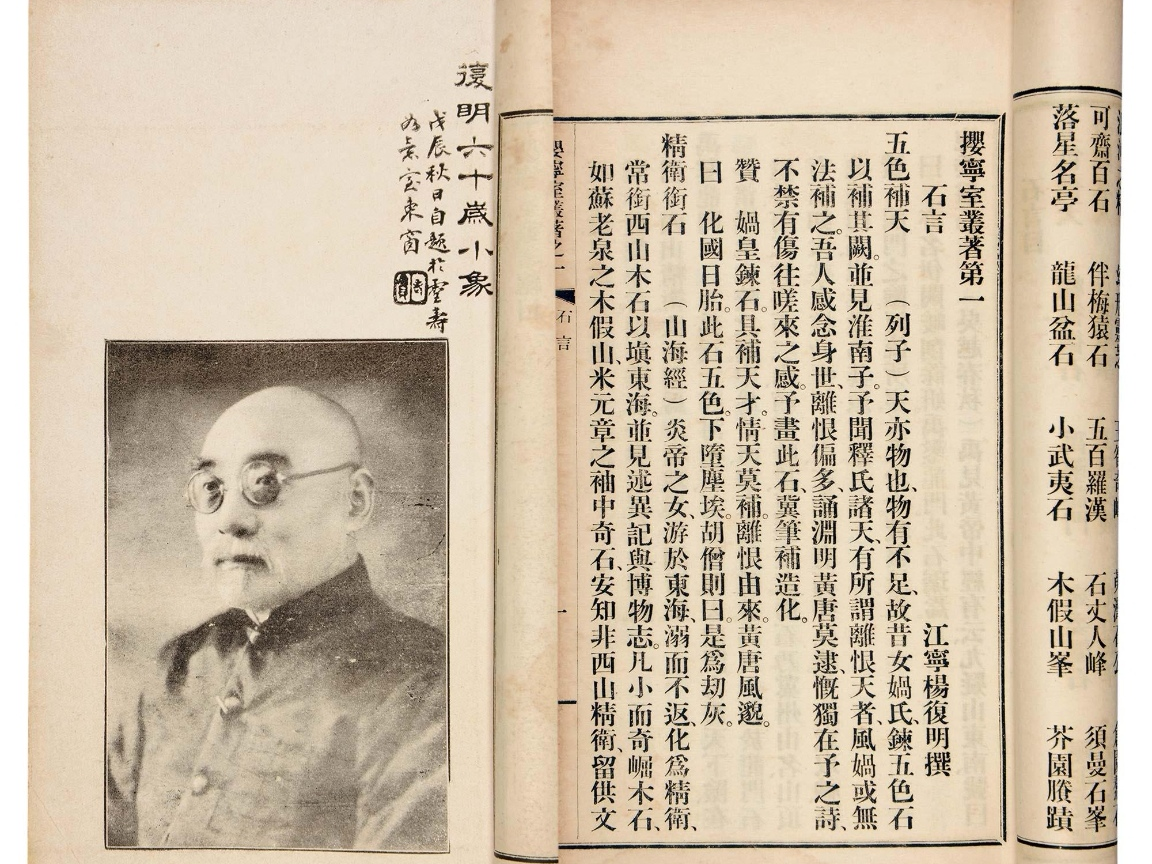 可齋百石 伴梅猿石 五百羅漢 石丈人峰 須曼石峯
落星名亭 龍山盆石 小武夷石 木假山峯 芥園賸蹟
攖寧室叢著第一
石言 江寧楊復明撰
五色補天 （列子）天亦物也、物有不足、故昔女媧氏、鍊五色石
以補其闕。並見淮南子。予聞釋氏諸天、有所謂離恨天者、風媧或無
法補之。吾人感念身世、離恨偏多、誦淵明黃唐莫逮、慨獨在予之詩、
不禁有傷往嗟來之感。予畫此石、冀筆補造化。
贊 媧皇鍊石。具補天才。情天莫補。離恨由來。黃唐風邈。
曰 化國日胎。此石五色。下墮塵埃。胡僧則曰。是爲劫灰。
精衛銜石 （山海經）炎帝之女、游於東海、溺而不返、化爲精衛、
常銜西山木石以塡東海。並見述異記與博物志。凡小而奇崛木石、
如蘇老泉之木假山、米元章之袖中奇石、安知非西山精衛、留供文
寧室叢著之一 石言 一
復明六十歲小象
戊辰秋日自題於靈壽
室東窗